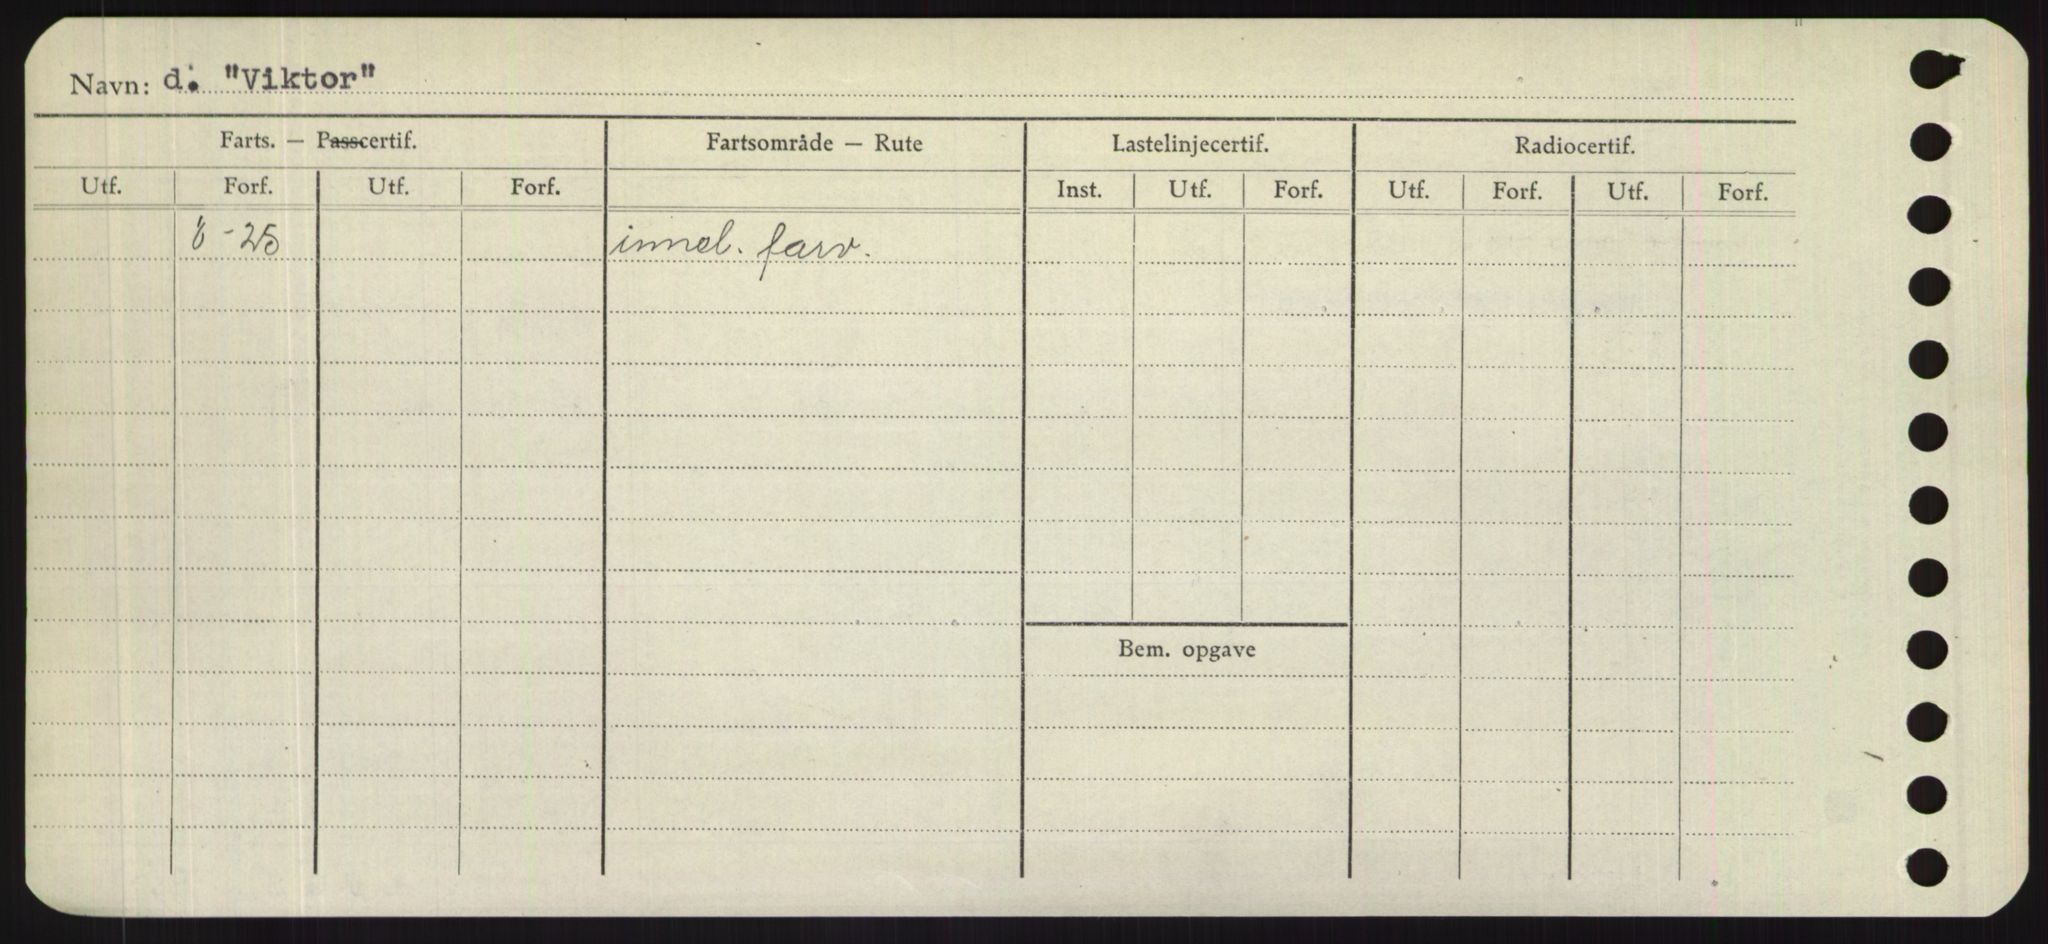 Navn: d. "Viktor"
Farts. — Passcertif. Fartsområde — Rute Lastelinjecertif. Radiocertif.
Utf. Forf. Utf. Forf. Inst. Utf. Forf. Utf. Forf. Utf. Forf.
-25 farv.
Bem. opgave